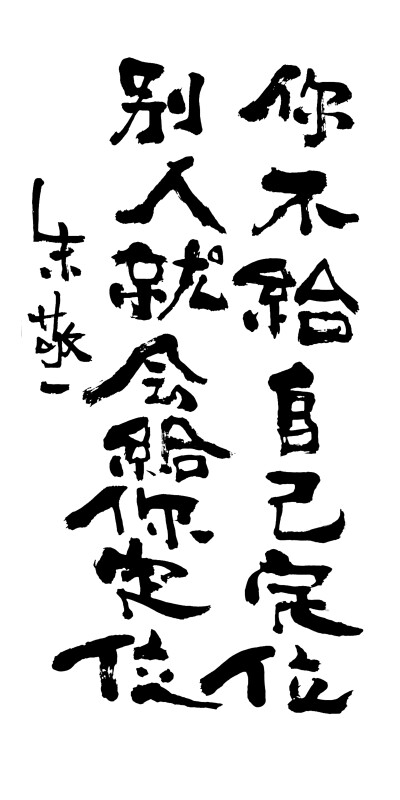 你不给自己定位
别人就会给你定位
朱敬一